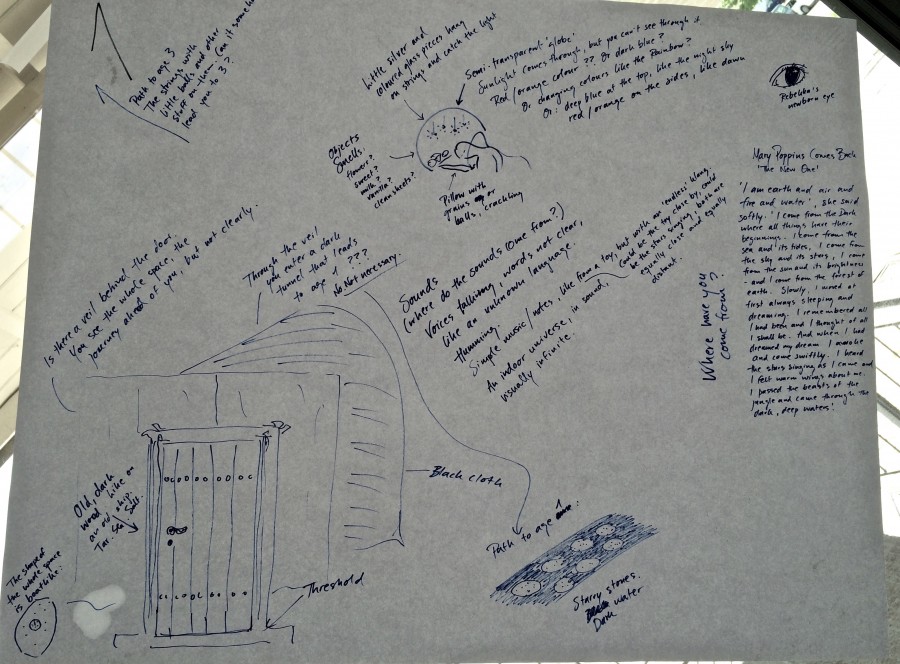 Path to age 3
The strings with
little balls and other
stuff on them. Can it somehow
lead you to 3?
Little silver and
coloured glass pieces hang
on strings and catch the light
Semi-transparent 'globe'.
Sunlight comes through, but you can't see through it
Red/orange colour?? Or dark blue?
Or changing colours like the rainbow?
Or: deep blue at the top, like the night sky
red/orange on the sides, like dawn
Rebekka's
newborn eye
Objects
Smells:
flowers?
sweet?
milk?
vanilla?
clean sheets?
Pillow with
grains or
balls, crackling
Mary Poppins Comes Back
'The New One'
'I am earth and air and
fire and water', she said
softly. 'I come from the Dark
where all things have their
beginning. I come from the
sea and its tides, I come from
the sky and its stars, I come
from the sun and its brightness
- and I come from the forest of
earth. Slowly, I moved at
first always sleeping and
dreaming. I remembered all
I had been and I thought of all
I shall be. And when I had
dreamed my dream I awoke
and came swiftly. I heard
the stars singing as I came and
I felt warm wings about me.
I passed the beasts of the
jungle and came through the
dark, deep waters.'
Where have you
come from?
Is there a veil behind the door.
You see the whole space, the
journey ahead of you, but not clearly.
Through the veil
you enter a dark
tunnel that leads
to age 1 ???
No not necessary.
Sounds
(where do the sounds come from?)
Voices talking, words not clear,
like an unknown language.
Humming.
Simple music/notes, like from a toy, but with an 'endless' klang.
Could be the toy close by, could
be the stars singing, both are
equally close and equally
distant.
An indoor universe, in sound,
usually infinite.
Black cloth
Old, dark
wood, like on
an old ship.
Tar. Sea. Salt.
The shape of
the whole space
is breathlike:
Threshold
Path to age 1:
Starry stones.
Dark water